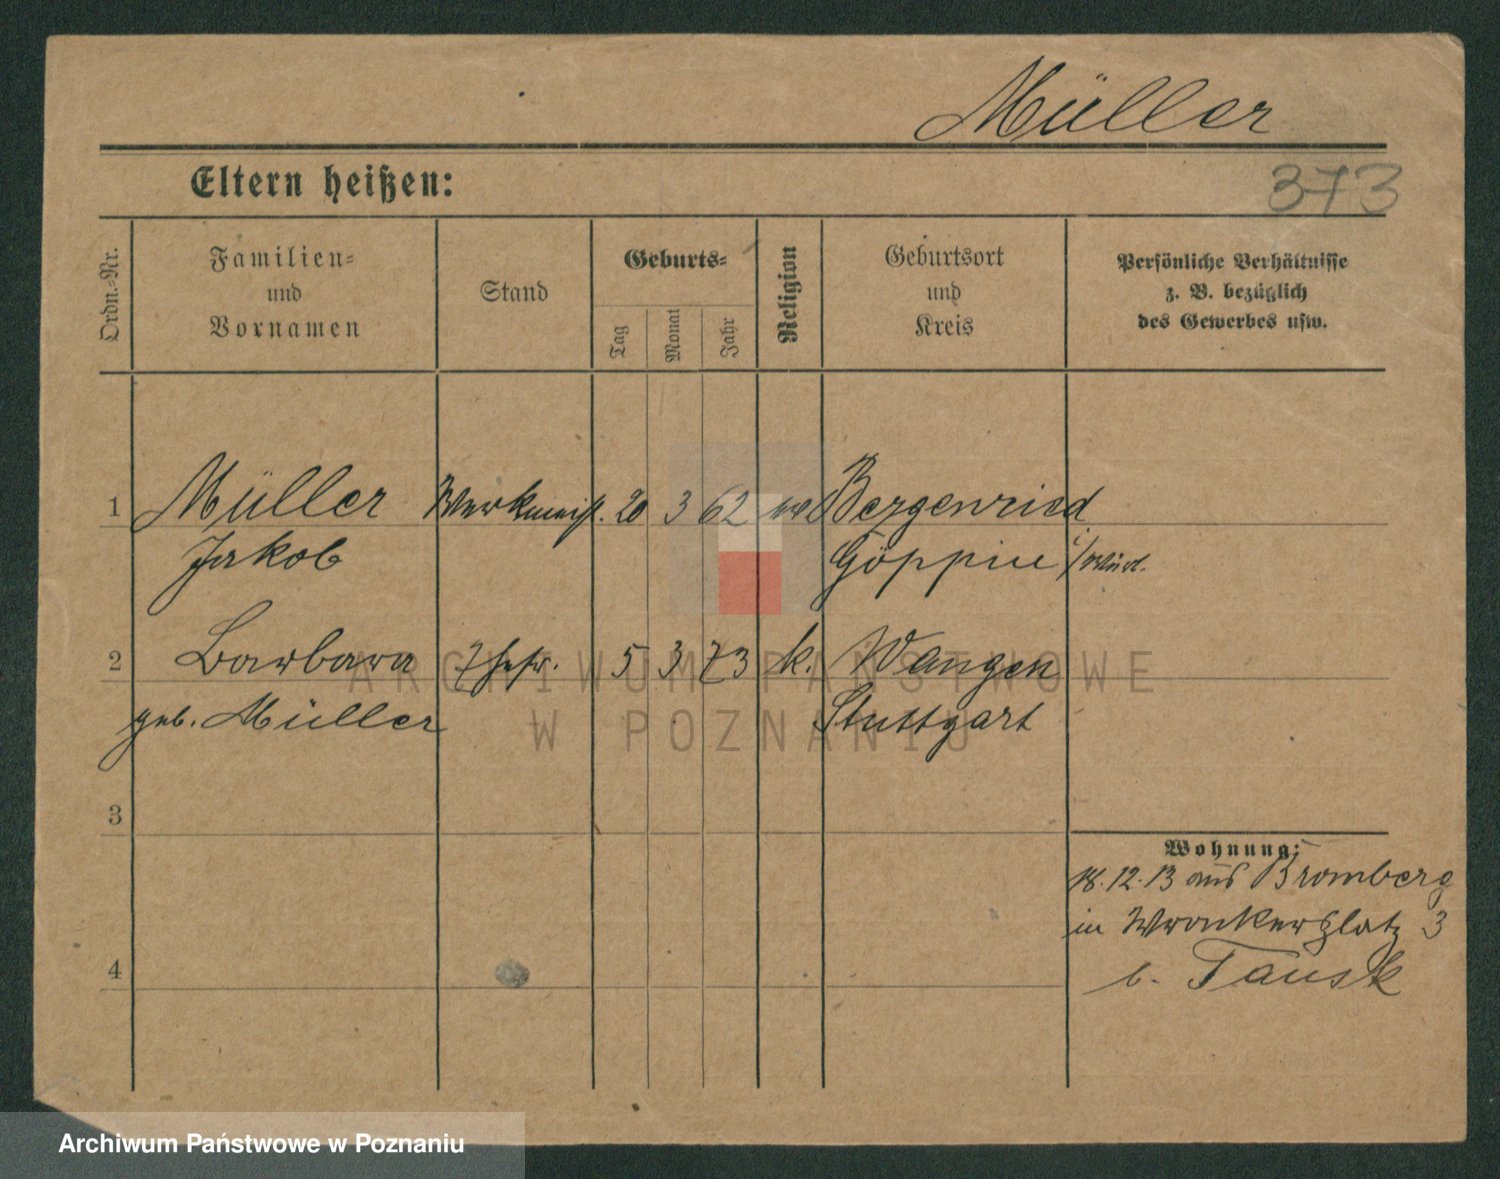 Müller
373
Eltern heißen:
Ordn.-Nr.
Familien-
und
Vornamen
Stand
Geburts-
Tag
Monat
Jahr
Religion
Geburtsort
und
Kreis
Persönliche Verhältnisse
z. B. bezüglich
des Gewerbes usw.
1 Müller Werkmeist. 20 3 62 ev Bezgenried
Jakob Göppin i/Würt.
2 Barbara 5 3 73 k. Wangen
geb. Müller Stuttgart
3
4
Wohnung:
18.12.13 aus Bromberg
in Wronkerplatz 3
b. Tausk
ARCHIWUM PAŃSTWOWE
W POZNANIU
Archiwum Państwowe w Poznaniu